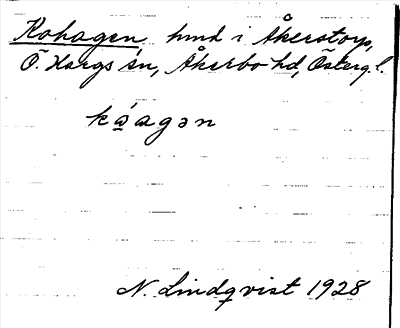 Kohagen, hmd i Åkerstorp,
Ö. Hargs sn, Åkerbo hd, Österg. l.
ká̤agən
N. Lindqvist 1928